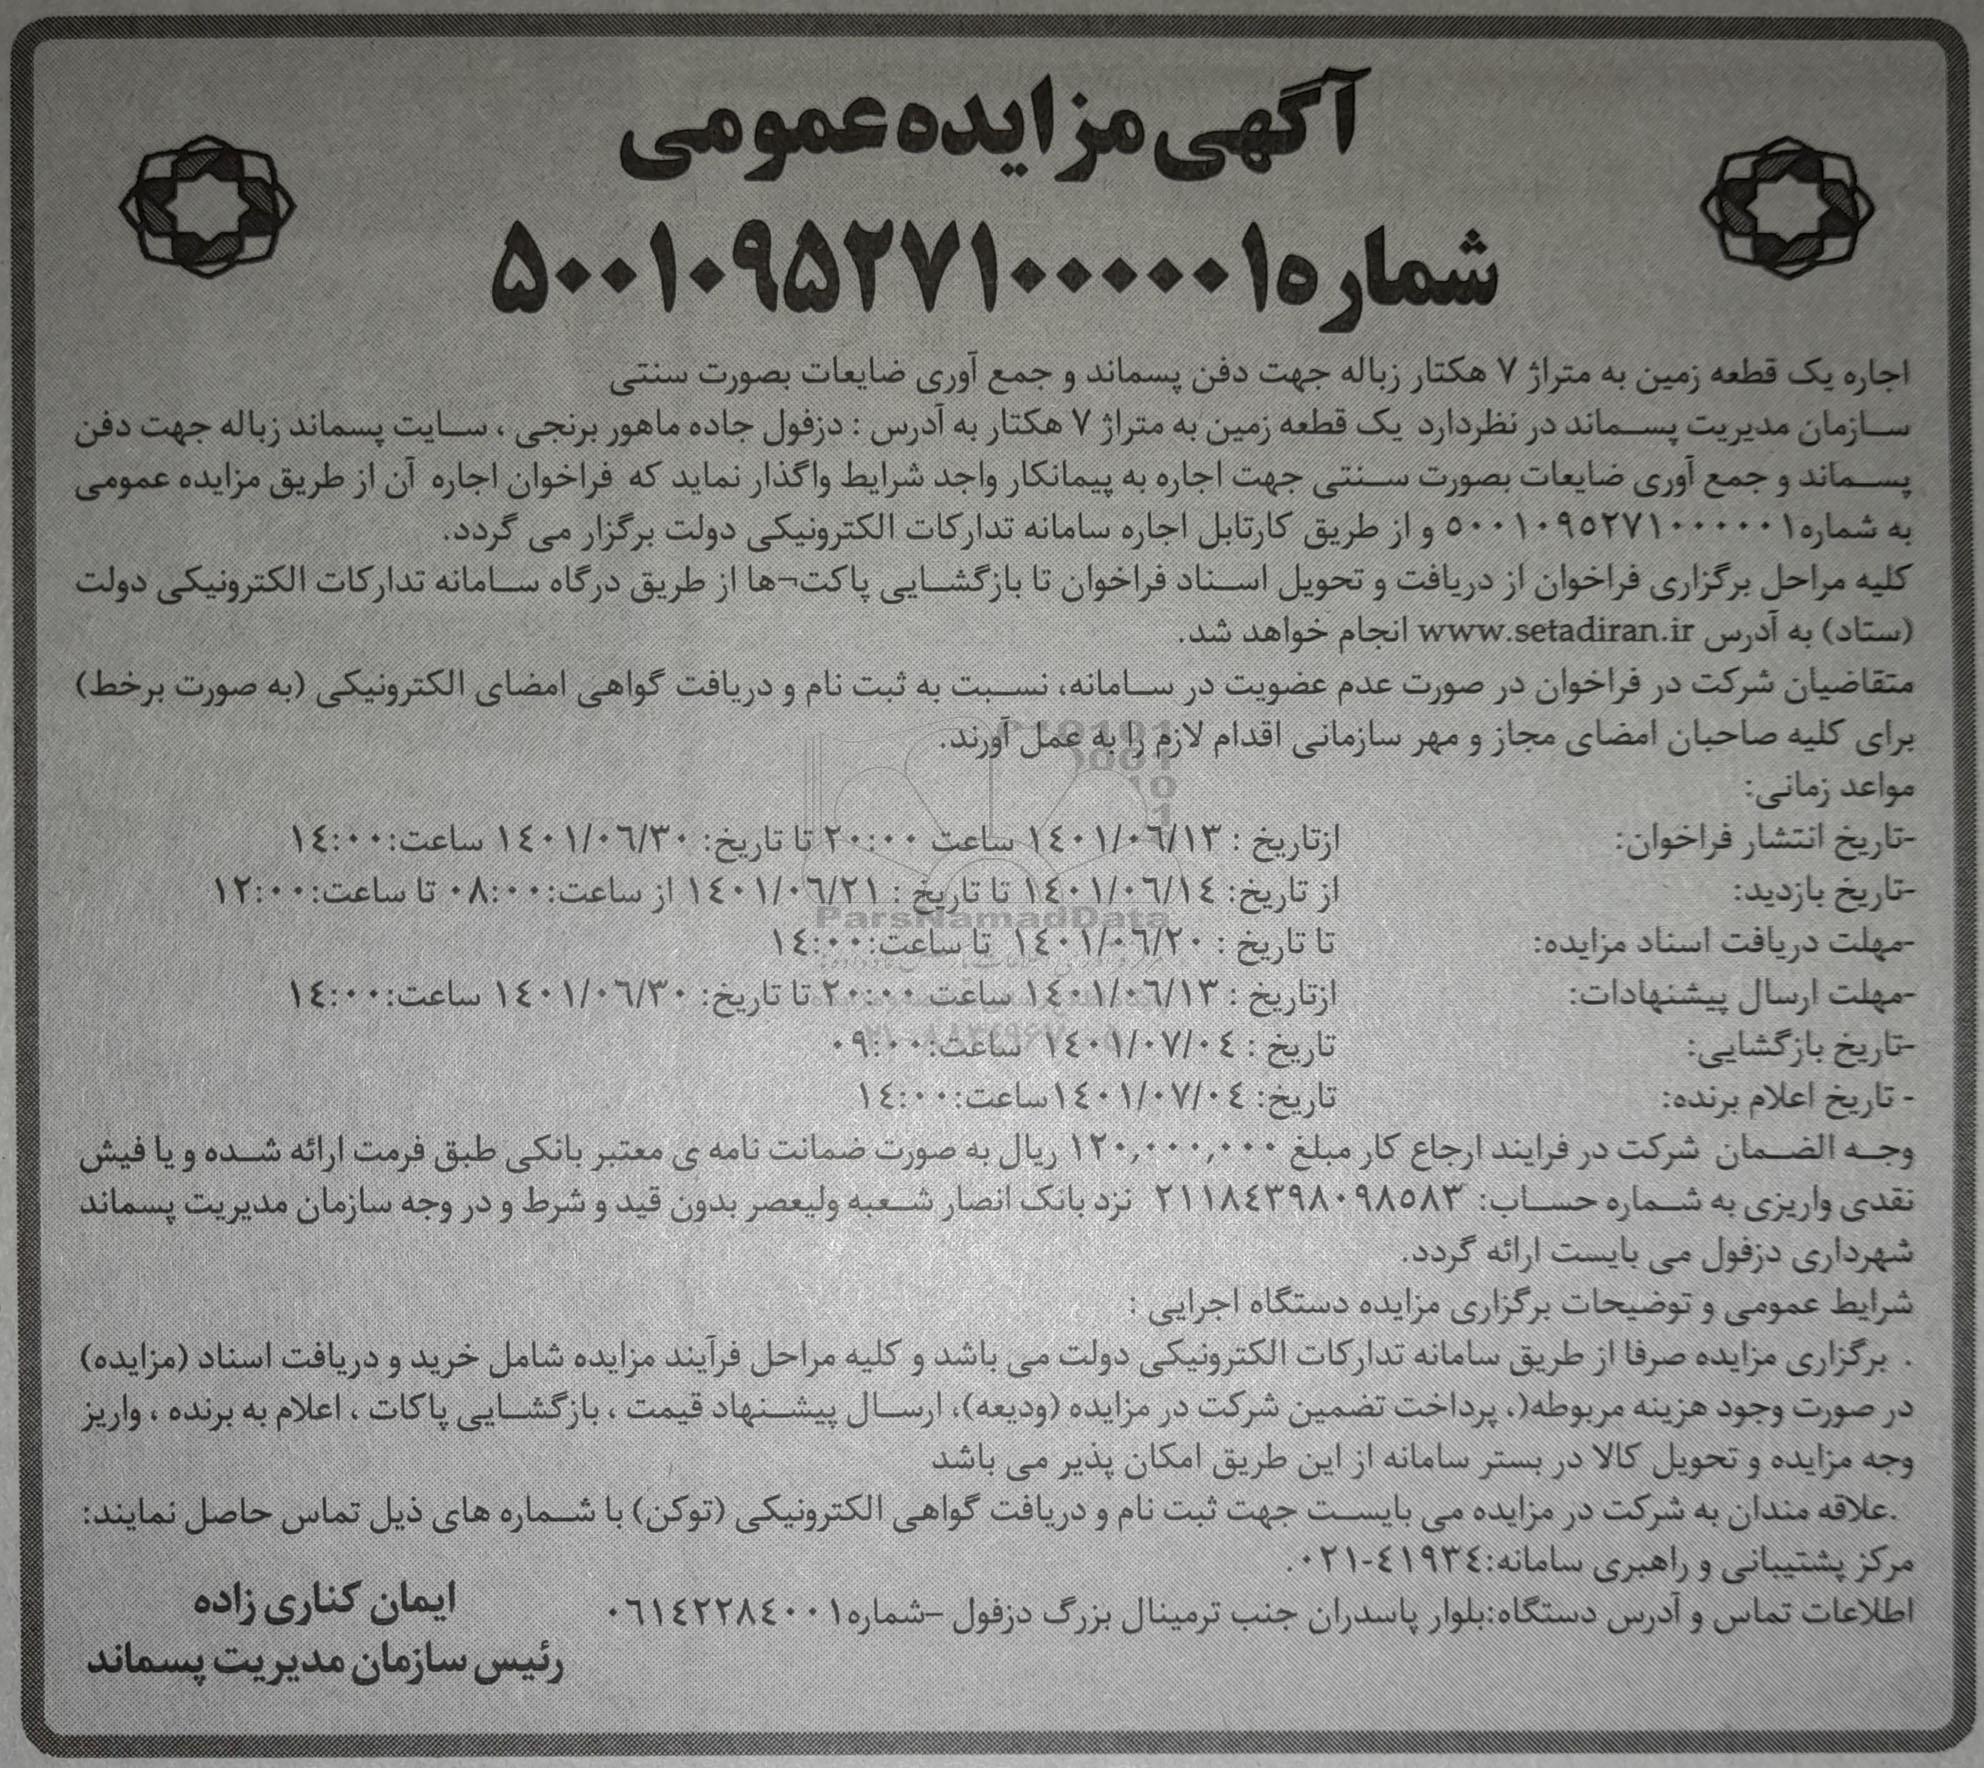 آگهی مزایده عمومی
شماره ۵۰۰۱۰۹۵۲۷۱۰۰۰۰۰۱
اجاره یک قطعه زمین به متراژ ۷ هکتار زباله جهت دفن پسماند و جمع آوری ضایعات بصورت سنتی
سازمان مدیریت پسماند در نظردارد یک قطعه زمین به متراژ ۷ هکتار به آدرس : دزفول جاده ماهور برنجی ، سایت پسماند زباله جهت دفن
پسماند و جمع آوری ضایعات بصورت سنتی جهت اجاره به پیمانکار واجد شرایط واگذار نماید که فراخوان اجاره آن از طریق مزایده عمومی
به شماره ۵۰۰۱۰۹۵۲۷۱۰۰۰۰۰۱ و از طریق کارتابل اجاره سامانه تدارکات الکترونیکی دولت برگزار می گردد.
کلیه مراحل برگزاری فراخوان از دریافت و تحویل اسناد فراخوان تا بازگشایی پاکت¬ها از طریق درگاه سامانه تدارکات الکترونیکی دولت
(ستاد) به آدرس www.setadiran.ir انجام خواهد شد.
متقاضیان شرکت در فراخوان در صورت عدم عضویت در سامانه، نسبت به ثبت نام و دریافت گواهی امضای الکترونیکی (به صورت برخط)
برای کلیه صاحبان امضای مجاز و مهر سازمانی اقدام لازم را به عمل آورند.
مواعد زمانی:
-تاریخ انتشار فراخوان: ازتاریخ : ۱۴۰۱/۰۶/۱۳ ساعت ۲۰:۰۰ تا تاریخ: ۱۴۰۱/۰۶/۳۰ ساعت:۱۴:۰۰
-تاریخ بازدید: از تاریخ: ۱۴۰۱/۰۶/۱۴ تا تاریخ : ۱۴۰۱/۰۶/۲۱ از ساعت:۰۸:۰۰ تا ساعت:۱۲:۰۰
-مهلت دریافت اسناد مزایده: تا تاریخ : ۱۴۰۱/۰۶/۲۰ تا ساعت:۱۴:۰۰
-مهلت ارسال پیشنهادات: ازتاریخ : ۱۴۰۱/۰۶/۱۳ ساعت ۲۰:۰۰ تا تاریخ: ۱۴۰۱/۰۶/۳۰ ساعت:۱۴:۰۰
-تاریخ بازگشایی: تاریخ : ۱۴۰۱/۰۷/۰۴ ساعت:۰۹:۰۰
- تاریخ اعلام برنده: تاریخ: ۱۴۰۱/۰۷/۰۴ساعت:۱۴:۰۰
وجه الضمان شرکت در فرایند ارجاع کار مبلغ ۱۲۰,۰۰۰,۰۰۰ ریال به صورت ضمانت نامه ی معتبر بانکی طبق فرمت ارائه شده و یا فیش
نقدی واریزی به شماره حساب: ۲۱۱۸۴۳۹۸۰۹۸۵۸۳ نزد بانک انصار شعبه ولیعصر بدون قید و شرط و در وجه سازمان مدیریت پسماند
شهرداری دزفول می بایست ارائه گردد.
شرایط عمومی و توضیحات برگزاری مزایده دستگاه اجرایی :
. برگزاری مزایده صرفا از طریق سامانه تدارکات الکترونیکی دولت می باشد و کلیه مراحل فرآیند مزایده شامل خرید و دریافت اسناد (مزایده)
در صورت وجود هزینه مربوطه(، پرداخت تضمین شرکت در مزایده (ودیعه)، ارسال پیشنهاد قیمت ، بازگشایی پاکات ، اعلام به برنده ، واریز
وجه مزایده و تحویل کالا در بستر سامانه از این طریق امکان پذیر می باشد
.علاقه مندان به شرکت در مزایده می بایست جهت ثبت نام و دریافت گواهی الکترونیکی (توکن) با شماره های ذیل تماس حاصل نمایند:
مرکز پشتیبانی و راهبری سامانه:۴۱۹۳۴-۰۲۱.
اطلاعات تماس و آدرس دستگاه:بلوار پاسدران جنب ترمینال بزرگ دزفول –شماره۰۶۱۴۲۲۸۴۰۰۱
ایمان کناری زاده
رئیس سازمان مدیریت پسماند
ParsNamadData